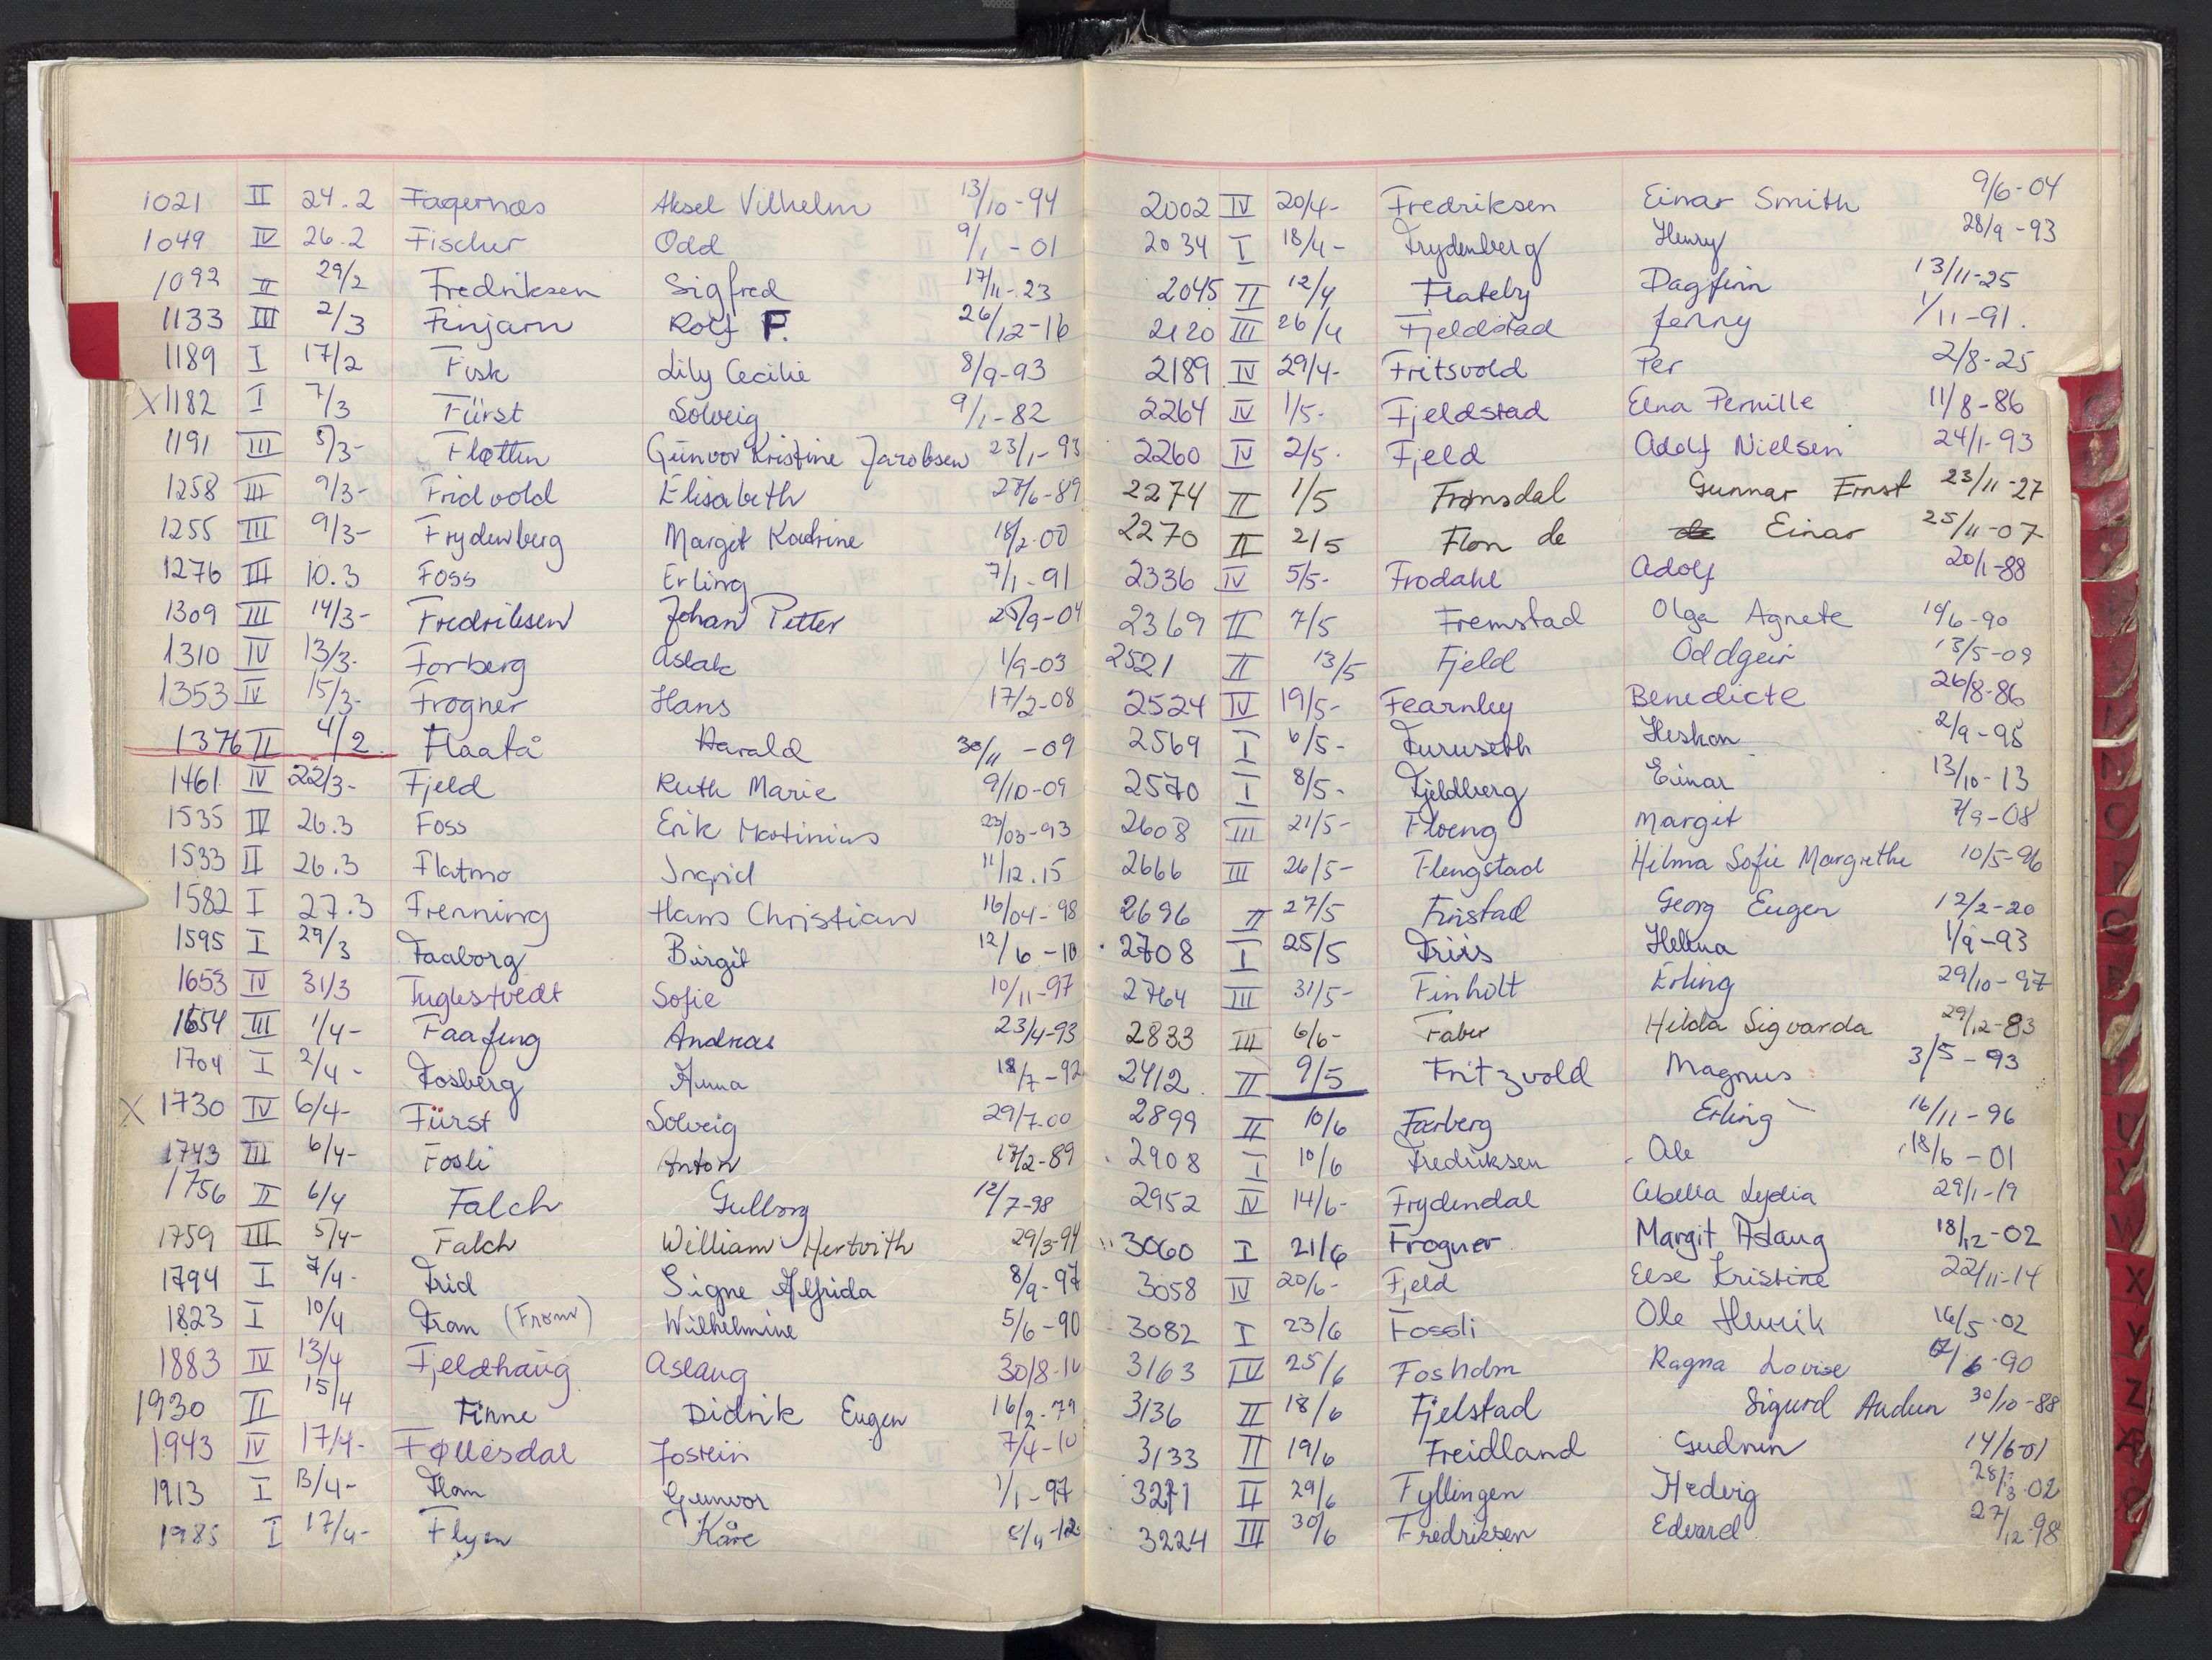 1021 II 24.2 Fagernæs Aksel Vilhelm 13/10-94
1049 IV 26.2 Fischer Odd 9/1-01
1092 II 29/2 Fredriksen Sigfred 17/11-23
1133 III 2/3 Finjarn Rolf F. 26/12-16
1189 I 17/2 Fisk Lily Cecilie 8/9-93
X1182 I 7/3 Fürst Solveig 9/1-82
1191 III 5/3- Flotten Gunvor Kristine Jacobsen 23/1-93
1258 III 9/3- Fridvold Elisabeth 27/6-89
1255 III 9/3- Frydenberg Margit Katrine 18/2-00
1276 III 10.3 Foss Erling 7/1-91
1309 III 14/3- Fredriksen Johan Petter 25/9-04
1310 IV 13/3- Forberg Aslak 1/9-03
1353 IV 15/3- Frogner Hans 17/2-08
1376 II 4/2. Flaatå Harald 30/11-09
1461 IV 22/3- Fjeld Ruth Marie 9/10-09
1535 IV 26.3 Foss Erik Martinius 23/03-93
1533 II 26.3 Flatmo Ingrid 11/12.15
1582 I 27.3 Frenning Hans Christian 16/04-98
1595 I 29/3 Faaborg Birgit 12/6-10
1653 IV 31/3 Fuglestvedt Sofie 10/11-97
1654 III 1/4- Faafeng Andreas 23/4-93
1704 I 2/4- Fosberg Anna 18/7-92
X 1730 IV 6/4- Fürst Solveig 29/7-00
1743 III 6/4- Fosli Anton 17/2-89
1756 II 6/4 Falch Gulborg 12/7-98
1759 III 5/4- Falch William Hertvith 29/3-94
1794 I 7/4- Frid Signe Alfrida 8/9-97
1823 I 10/4 Fron (From) Wilhelmine 5/6-90
1883 IV 13/4 Fjeldhaug Aslaug 30/8-10
1930 II 15/4 Finne Didrik Eugen 16/2-79
1943 IV 17/4- Føllesdal Jostein 7/4-10
1913 I 13/4- Flom Gunvor 1/1-97
1985 I 17/4- Flyen Kåre 5/4-12
2002 IV 20/4- Fredriksen Einar Smith 9/6-04
2034 I 18/4- Frydenberg Henry 28/9-93
2045 II 12/4 Flateby Dagfinn 13/11-25
2120 III 26/4 Fjeldstad Jenny 1/11-91.
2189 IV 29/4- Fritsvold Per 2/8-25
2264 IV 1/5- Fjeldstad Elna Pernille 11/8-86
2260 IV 2/5- Fjeld Adolf Nielsen 24/1-93
2274 II 1/5 Fromsdal Gunnar Ernst 23/11-27
2270 II 2/5 Flon de Einar 25/11-07
2336 IV 5/5- Frodahl Adolf 20/1-88
2369 II 7/5 Fremstad Olga Agnete 19/6-90
2521 II 13/5 Fjeld Oddgeir 13/5-09
2524 IV 19/5- Fearnley Benedicte 26/8-86
2569 I 6/5- Furuseth Heskon 2/9-95
2570 I 8/5- Fjeldberg Einar 13/10-13
2608 III 21/5- Floeng Margit 7/9-08
2666 III 26/5- Flengstad Hilma Sofie Margrethe 10/5-96
2696 II 27/5 Finstad Georg Eugen 12/2-20
2708 I 25/5 Friis Helena 1/9-93
2764 III 31/5- Finholt Erling 29/10-97
2833 III 6/6- Faber Hilda Sigvarda 29/12-83
2412 II 9/5 Fritzvold Magnus 3/5-93
2899 II 10/6 Færberg Erling 16/11-96
2908 I 10/6 Fredriksen Ole 18/6-01
2952 IV 14/6- Frydendal Abella Lydia 29/1-19
3060 I 21/6 Frogner Margit Aslaug 18/12-02
3058 IV 20/6- Fjeld Else Kristine 22/11-14
3082 I 23/6 Fossli Ole Henrik 16/5-02
3163 IV 25/6 Fosholm Ragna Lovise /6-90
3136 II 18/6 Fjelstad Sigurd Audun 30/10-88
3133 II 19/6 Freidland Gudrun 14/6-01
3271 II 29/6 Fyllingen Hedvig 28/3-02
3224 III 30/6 Fredriksen Edvard 27/12-98
O
P
Q
R
U
V
W
X
Y
Z
Æ
Ø